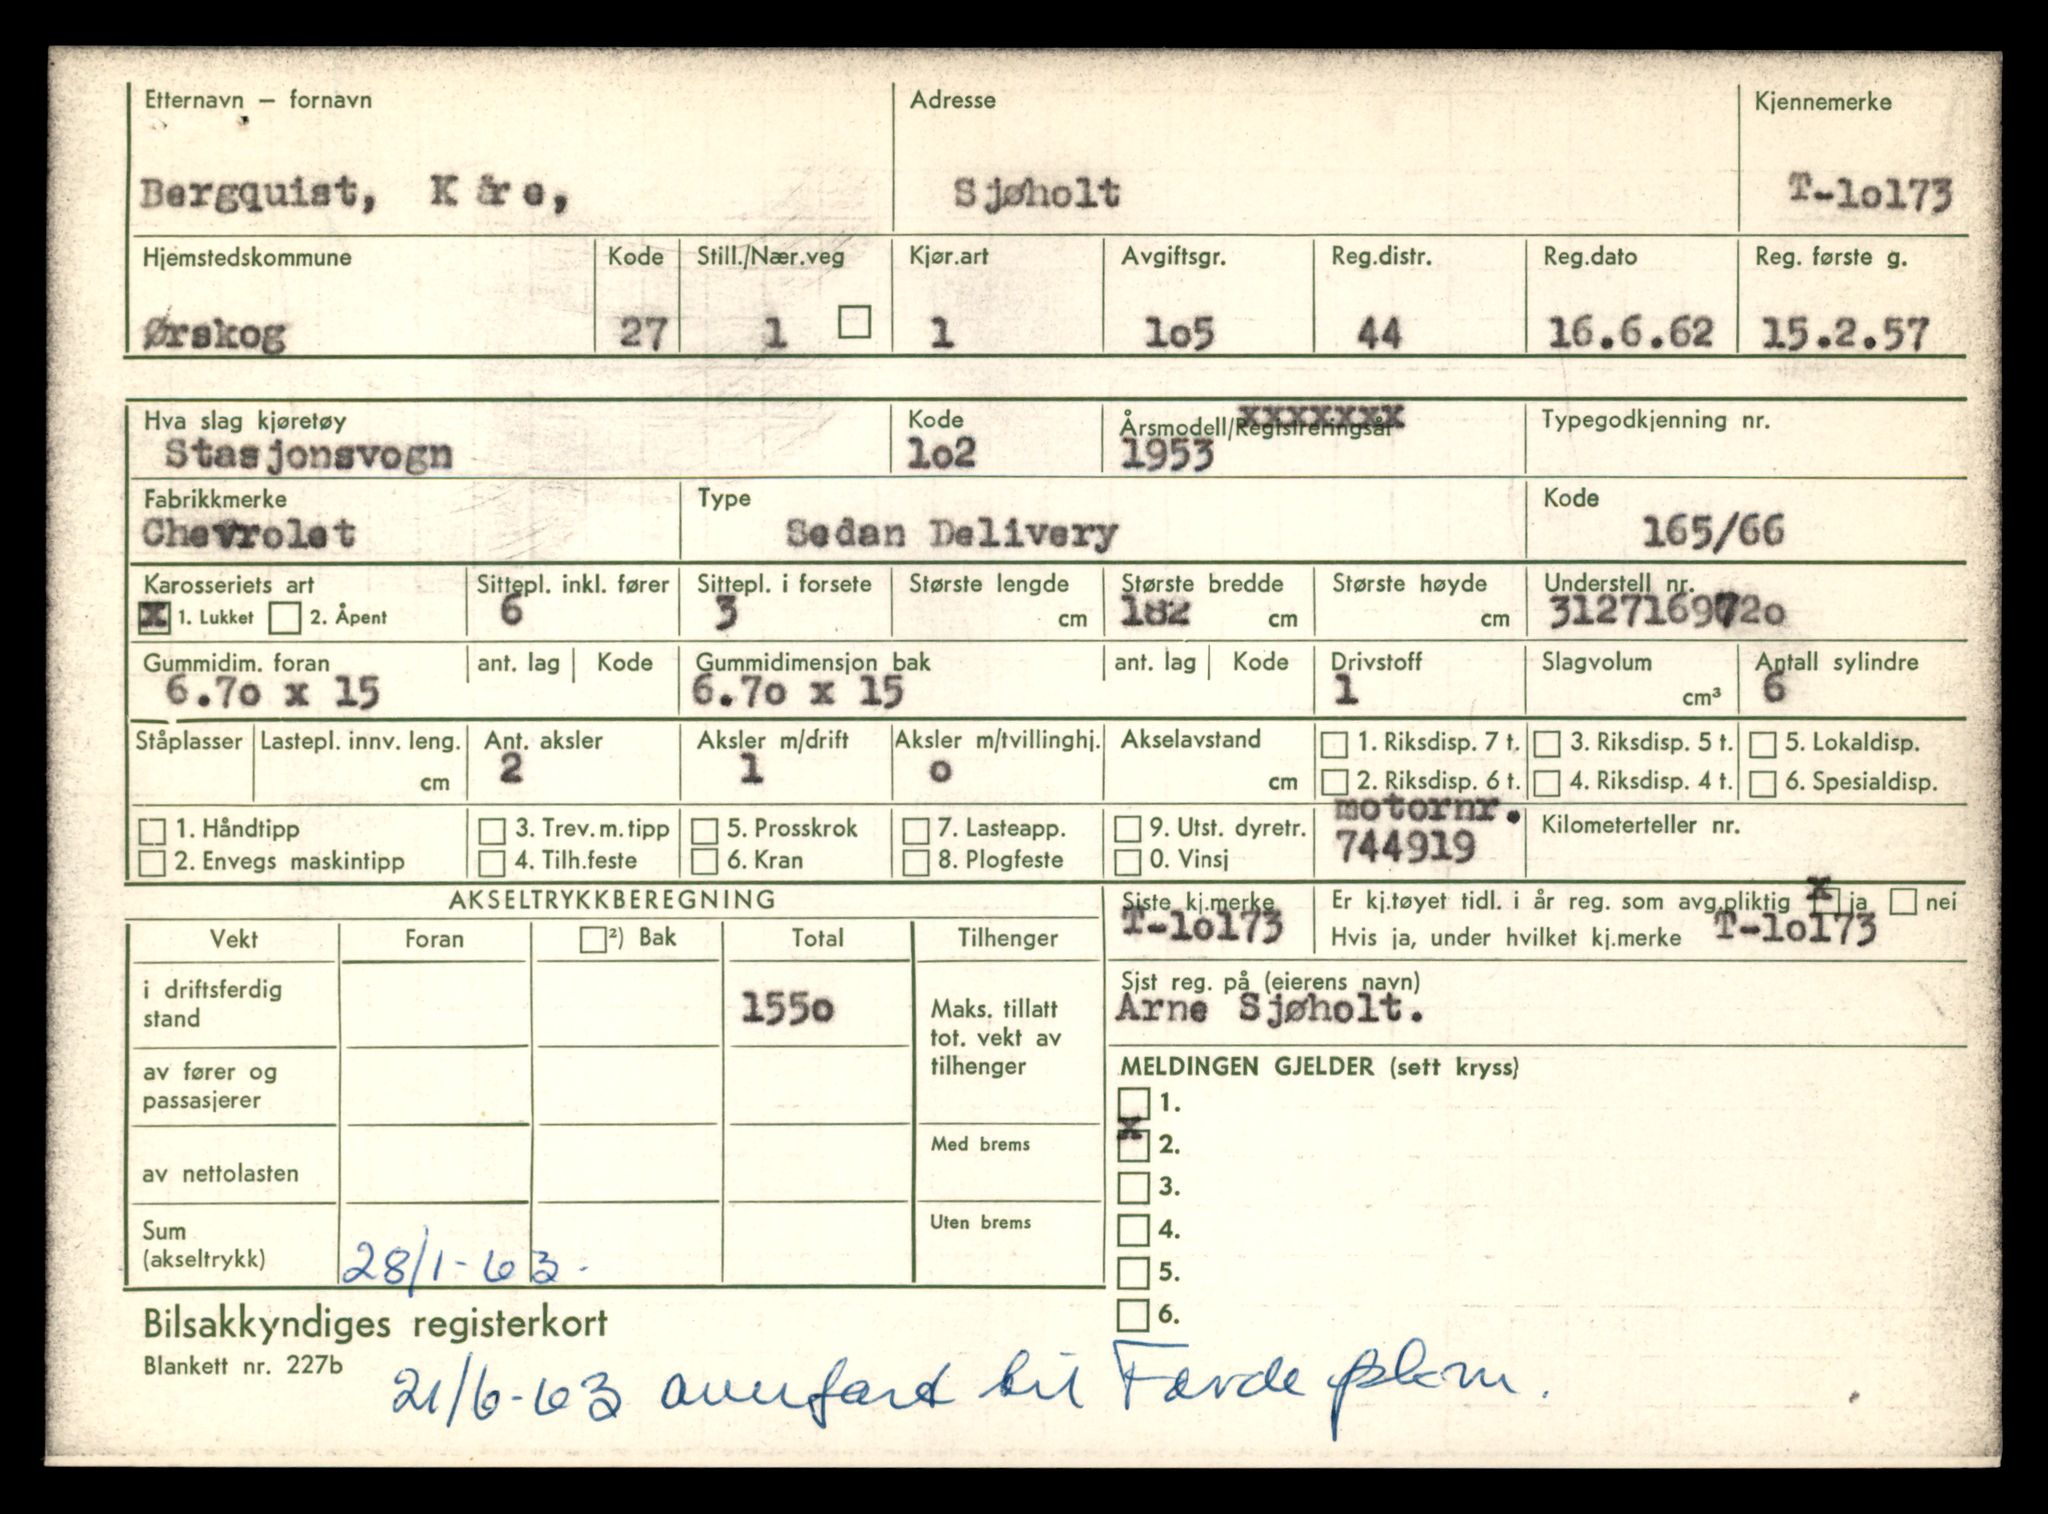 Etternavn — fornavn Adresse Kjennemerke
Bergquist, Kåre, Sjøholt T-1o173
Hjemstedskommune Kode Still./Nær.veg Kjør.art Avgiftsgr. Reg.distr. Reg.dato Reg. første g.
Ørskog 27 1 1 1o5 44 16.6.62 15.2.57
Hva slag kjøretøy Kode Årsmodell/Registreringsår xxxxxxx Typegodkjenning nr.
Stasjonsvogn 1o2 1953
Fabrikkmerke Type Kode
Chevrolet Sedan Delivery 165/66
Karosseriets art Sittepl. inkl. fører Sittepl. i forsete Største lengde Største bredde Største høyde Understell nr.
x 1. Lukket 2. Åpent 6 3 cm 182 cm cm 312716972o
Gummidim. foran ant. lag Kode Gummidimensjon bak ant. lag Kode Drivstoff Slagvolum Antall sylindre
6.7o x 15 6.7o x 15 1 cm³ 6
Ståplasser Lastepl. innv. leng. Ant. aksler Aksler m/drift Aksler m/tvillinghj. Akselavstand 1. Riksdisp. 7 t. 3. Riksdisp. 5 t. 5. Lokaldisp.
cm 2 1 o cm 2. Riksdisp. 6 t. 4. Riksdisp. 4 t. 6. Spesialdisp.
1. Håndtipp 3. Trev. m. tipp 5. Prosskrok 7. Lasteapp. 9. Utst. dyretr. motornr. Kilometerteller nr.
2. Envegs maskintipp 4. Tilh.feste 6. Kran 8. Plogfeste 0. Vinsj 744919
AKSELTRYKKBEREGNING Siste kj.merke Er kj.tøyet tidl. i år reg. som avg.pliktig x ja nei
T-1o173 Hvis ja, under hvilket kj.merke T-1o173
Vekt Foran ²) Bak Total Tilhenger
Sist reg. på (eierens navn)
Arne Sjøholt.
i driftsferdig stand 155o Maks. tillatt tot. vekt av tilhenger
av fører og passasjerer
av nettolasten Med brems
Sum (akseltrykk) 28/1-63. Uten brems
MELDINGEN GJELDER (sett kryss)
1.
x 2.
3.
4.
5.
6.
Bilsakkyndiges registerkort
Blankett nr. 227b
21/6-63 overført til Førde